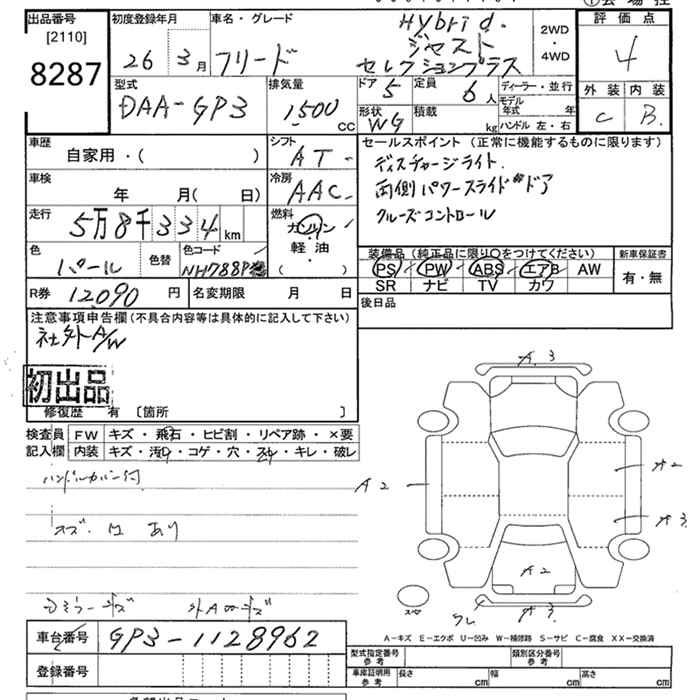 出品番号
[2110]
8287
初度登録年月
26 3月
車名・グレード
フリード
Hybrid.
ジャスト
セレクションプラス
2WD
・
4WD
評価点
4
外装 内装
C B.
型式
DAA-GP3
排気量
1500
CC
ドア 5
定員 6人
形状 WG
積載 kg
ディーラー・並行
モデル年式 年
ハンドル 左・右
車歴
自家用・( )
シフト
AT
車検
年 月( 日)
冷房
AAC
走行
5万8千334km
燃料
ガソリン
軽・油
( )
色
パール
色替
色コード
NH788P
R券 12,090円
名変期限 月 日
セールスポイント(正常に機能するものに限ります)
ディスチャージライト.
両側パワースライドドア
クルーズコントロール
装備品(純正品に限り○をつけてください)
PS PW ABS エアB AW
SR ナビ TV カワ
新車保証書
有・無
後日品
注意事項申告欄(不具合内容等は具体的に記入して下さい)
社外A/W
初出品
修復歴 有 [箇所 ]
検査員記入欄
FW キズ・飛石・ヒビ割・リペア跡・×要
内装 キズ・汚レ・コゲ・穴・スレ・キレ・破レ
ハンドルカバー付
A 3
A2
A2
A3
A2
A3
A−キズ E−エクボ U−凹み W−補修跡 S−サビ C−腐食 XX−交換済
車台番号 GP3-1128962
登録番号
型式指定番号
参考
類別区分番号
参考
車庫証明用
参考
長さ cm
幅 cm
高さ cm